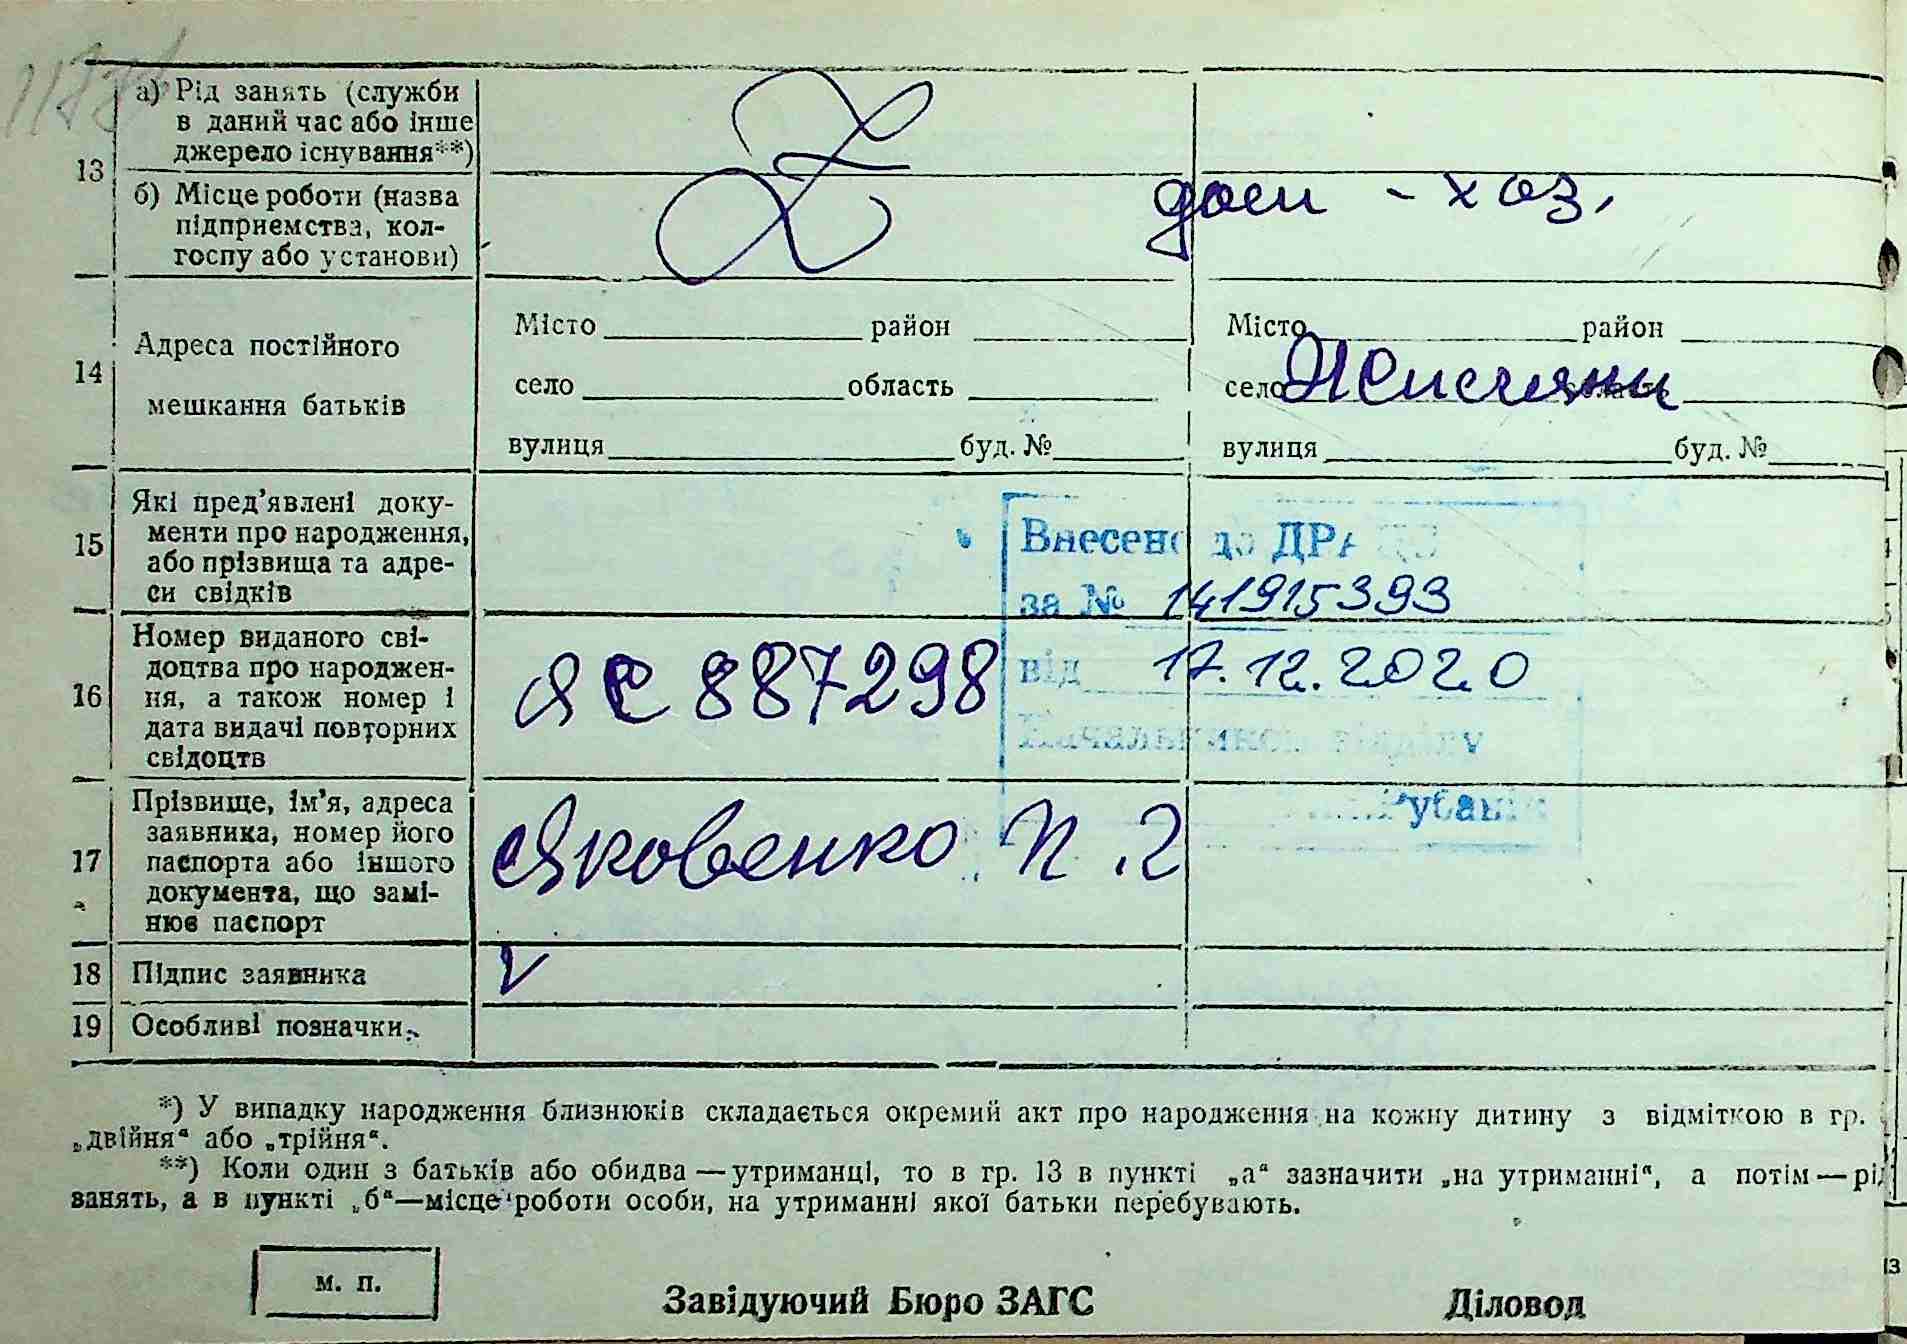 а) Рід занять (служби
в даний час або інше
джерело існування**)
13
б) Місце роботи (назва
підприємства, кол-
госпу або установи)
дом - хоз.
14
Адреса постійного
мешкання батьків
Місто район
село область
вулиця буд. №
Місто район
село область
вулиця буд. №
15
Які пред’явлені доку-
менти про народження,
або прізвища та адре-
си свідків
Внесено до ДРАЦС
за № 141915393
від 17.12.2020
Начальником відділу
16
Номер виданого сві-
доцтва про народжен-
ня, а також номер і
дата видачі повторних
свідоцтв
ЯС 887298
17
Прізвище, ім’я, адреса
заявника, номер його
паспорта або іншого
документа, що замі-
нює паспорт
Яковенко П. Г
18 Підпис заявника
V
19 Особливі позначки.
*) У випадку народження близнюків складається окремий акт про народження на кожну дитину з відміткою в гр.
„двійня“ або „трійня“.
**) Коли один з батьків або обидва — утриманці, то в гр. 13 в пункті „а“ зазначити „на утриманні“, а потім — рід
занять, а в пункті „б“ — місце роботи особи, на утриманні якої батьки перебувають.
м. п.
Завідуючий Бюро ЗАГС
Діловод